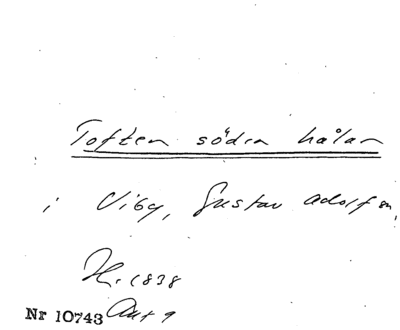 Toften södra hålan
i Viby, Gustav Adolf sn,
H. 1838
Nr 10743 Akt 9